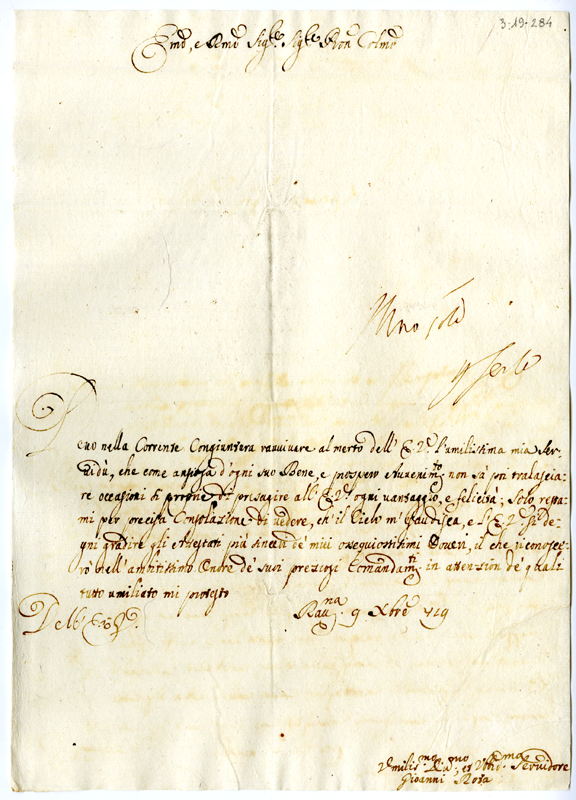 3-19-284
Emo, e Rmo Sigre, Sigre Pron Colmo
Devo nella Corrente Congiuntura ravvivare al merto dell' E. V. l'umilissima mia Ser-
vidù, che come ansiosa d'ogni suo Bene, e prospero Avvenimto non sà poi tralascia-
re occasioni di presagire all' E. V. ogni vantaggio, e felicità. Solo resta-
mi per precisa Consolazione di vedere, ch' il Cielo m' esaudisca, e l' E. V. si de-
gni gradire gli Attestati più sinceri de' miei ossequiosissimi Doveri, il che riconosce-
rò nell' ambitissimo Onore de' suoi preziosi Comandamti in attenzion de' quali
tutto umiliato mi protesto
Dell' E. V.
Ravna 9 Xbre 729
Umilismo Devmo, et Obblmo Servidore
Gioanni Rota